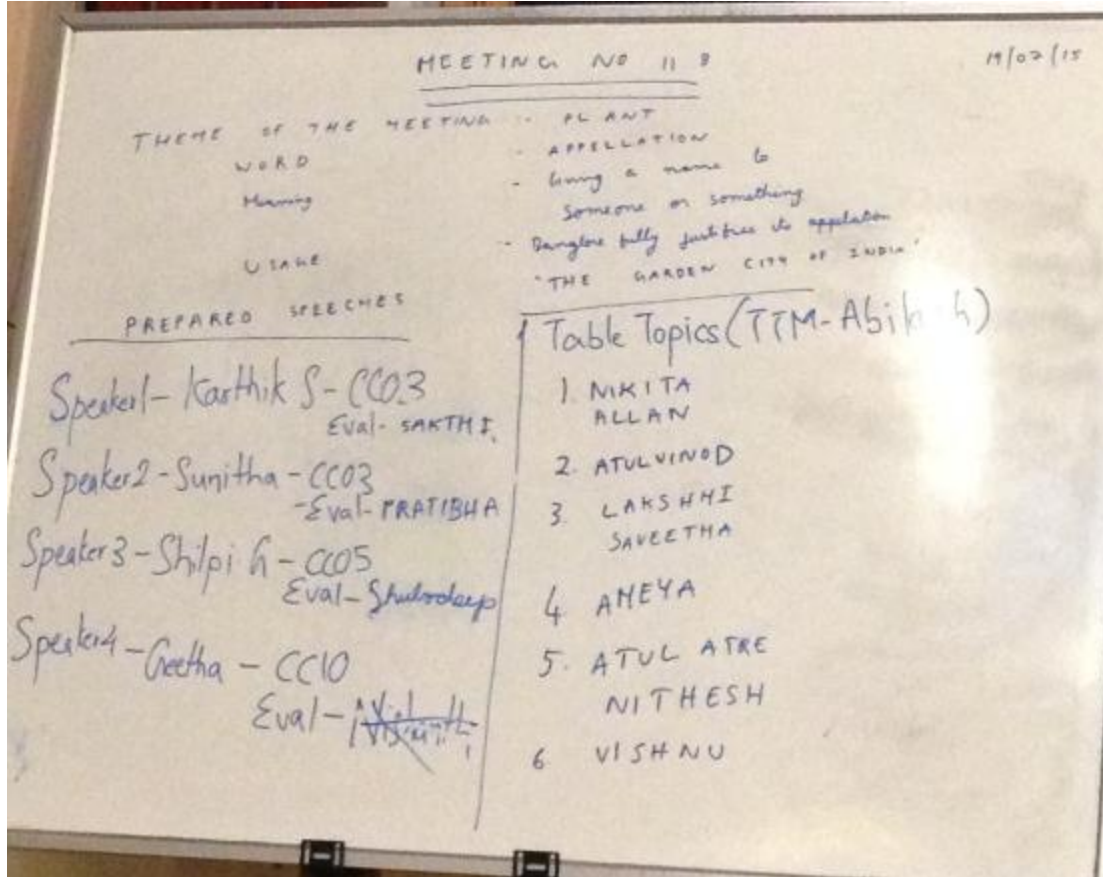 MEETING NO 118
19/02/15
THEME OF THE MEETING - PLANT
WORD - APPELLATION
Meaning - Giving a name to
someone or something
USAGE - Banglore fully justifies its appelation
"THE GARDEN CITY OF INDIA"
PREPARED SPEECHES
Speaker1 - Karthik S - CC03
Eval - SAKTHI
Speaker2 - Sunitha - CC03
- Eval - PRATIBHA
Speaker3 - Shilpi G - CC05
Eval - Shubrodeep
Speaker4 - Geetha - CC10
Eval -
Table Topics (TTM -
1. NIKITA
ALLAN
2. ATUL VINOD
3. LAKSHMI
SAVEETHA
4 AMEYA
5. ATUL ATRE
NITHESH
6 VISHNU